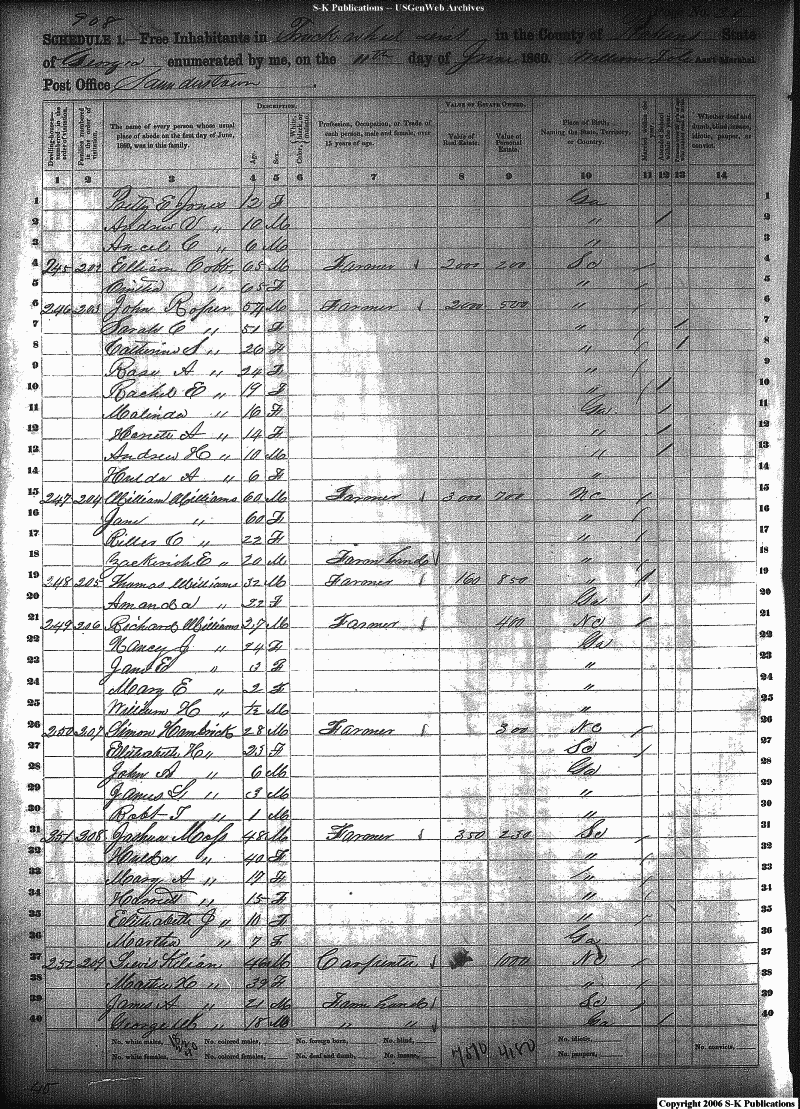 S-K Publications -- USGenWeb Archives
908
SCHEDULE 1.—Free Inhabitants in Truck wheel in the County of Pickens State
of Georgia enumerated by me, on the 11th day of June 1860. William Ass't Marshal
Post Office
DESCRIPTION. VALUE OF ESTATE OWNED.
Dwelling-houses—numbered in the order of visitation.
Families numbered in the order of visitation.
The name of every person whose usual place of abode on the first day of June, 1860, was in this family.
Age. Sex. Color, White, black, or mulatto.
Profession, Occupation, or Trade of each person, male and female, over 15 years of age.
Value of Real Estate. Value of Personal Estate.
Place of Birth, Naming the State, Territory, or Country.
Married within the year. Attended School within the year.
Whether deaf and dumb, blind, insane, idiotic, pauper, or convict.
1 2 3 4 5 6 7 8 9 10 11 12 13 14
1 E Jones 12 F Ga 1
2 Andrew V " 10 M " / 2
3 Ancel C " 6 M " 3
4 245 202 Ellison Cobb 65 M Farmer 2000 200 Sc 4
5 " 65 F " 5
6 246 203 John Roper 54 M Farmer 2000 500 " 6
7 Sarah C " 51 F " / 7
8 Catherine S " 26 F " / 8
9 A " 24 F " 9
10 Rachel E " 19 F " / 10
11 Malinda " 16 F Ga / 11
12 A " 14 F " / 12
13 Andrew H " 10 M " / 13
14 Hulda A " 6 F " 14
15 247 204 William Williams 60 M Farmer 3000 700 NC 15
16 Jane " 60 F " 16
17 C " 22 F " 17
18 E " 20 M Farm hand " 18
19 248 205 Thomas Williams 32 M Farmer 160 850 " 19
20 Amanda " 22 F Ga 20
21 249 206 Richard Williams 27 M Farmer 400 NC 21
22 Nancy J " 24 F Ga 22
23 Jane E " 3 F " 23
24 Mary E " 2 F " 24
25 William H " ½ M " 25
26 250 207 Simon Hambrick 28 M Farmer 300 NC 26
27 Elizabeth H " 23 F Sc 27
28 John A " 6 M Ga 28
29 James L " 3 M " 29
30 Robt T " 1 M " 30
31 251 208 Joshua Moss 48 M Farmer 350 230 Sc 31
32 Hulda " 40 F " 32
33 Mary A " 17 F " 33
34 " 15 F " 34
35 Elizabeth J " 10 F " 35
36 Martha " 7 F Ga 36
37 252 209 Lewis Kilian 46 M Carpenter 1000 NC 37
38 Martha " 39 F " 38
39 James A " 21 M Farm hand Sc 39
40 George W " 18 M " " Ga / 40
No. white males, No. colored males, No. foreign born, No. blind, No. idiotic, No. convicts,
No. white females, No. colored females, No. deaf and dumb, No. insane, No. paupers,
4180
40
Copyright 2006 S-K Publications